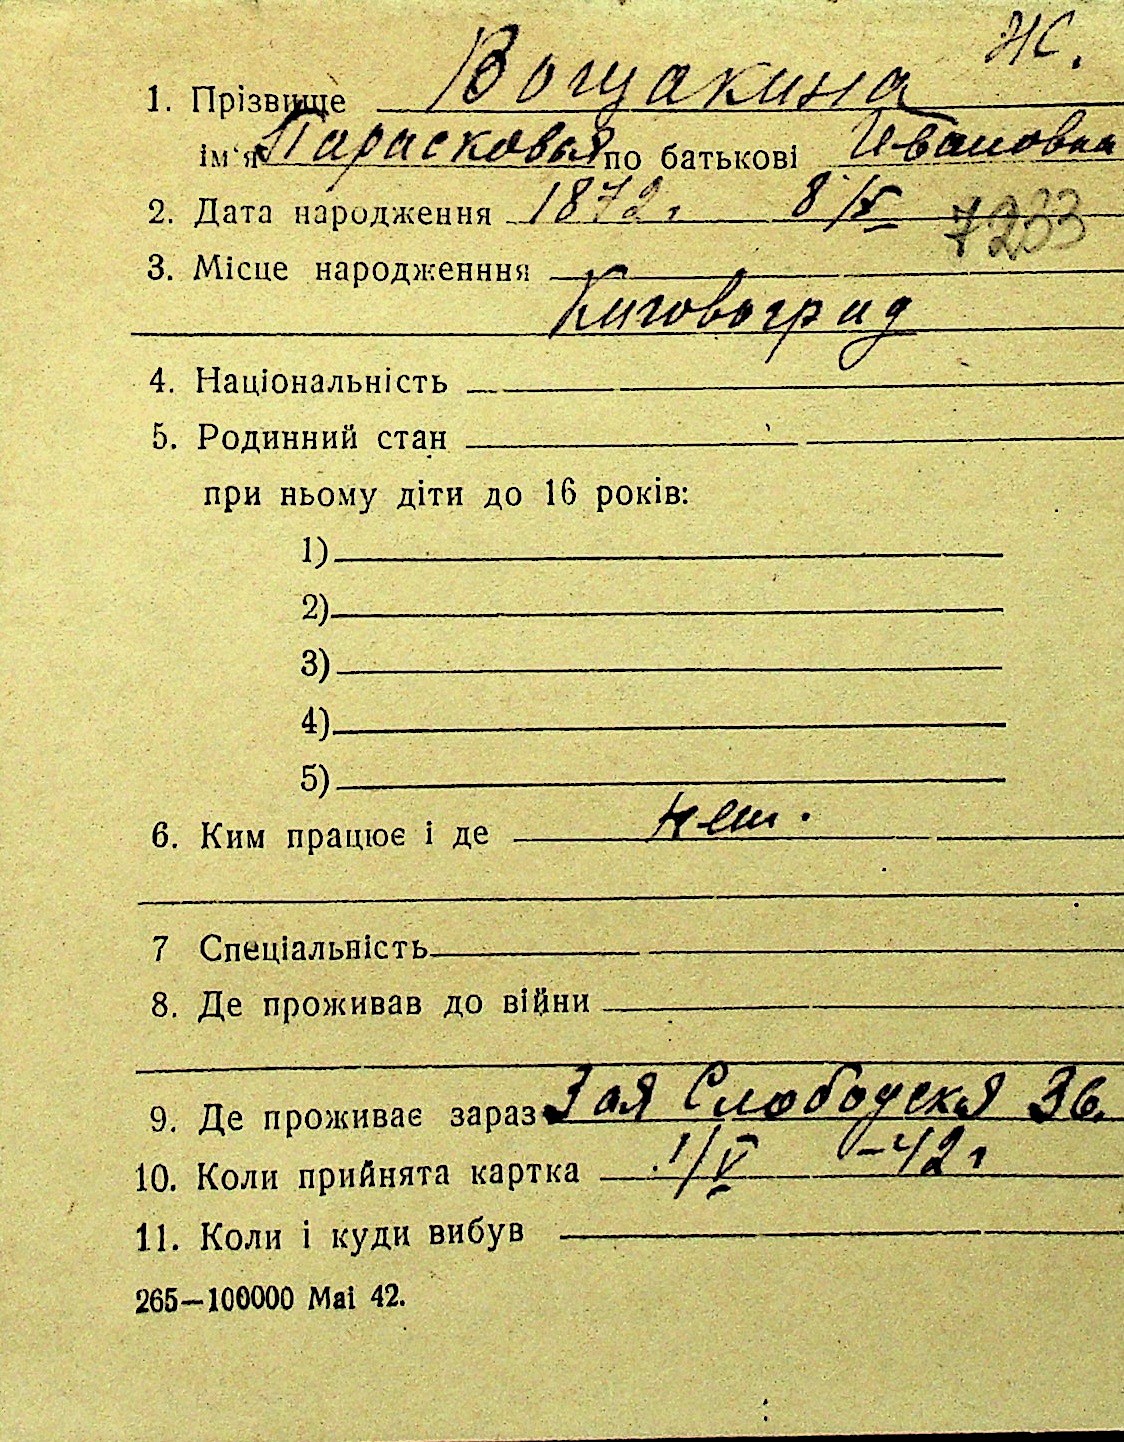 Ж.
1. Прізвище Вощакина
ім'я Парасковья по батькові Ивановна
2. Дата народження 1872 г. 8/X
7233
3. Місце народженння
Кировоград
4. Національність
5. Родинний стан
при ньому діти до 16 років:
1)
2)
3)
4)
5)
6. Ким працює і де нет.
7 Спеціальність
8. Де проживав до війни
9. Де проживає зараз 3ая Слободская 36.
10. Коли прийнята картка 1/V –42 г
11. Коли і куди вибув
265—100000 Маі 42.